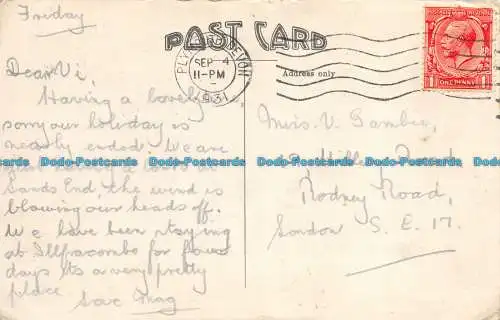 Friday
POST CARD
PLYMOUTH DEVON
SEP 4
11-PM
1931
Address only
POSTAGE REVENUE
1 ONE PENNY 1
Dear Vi,
Having a lovely
sorry our holiday is
nearly ended. We are
Dodo-Postcards Dodo-Postcards Dodo-Postcards Dodo-Postcards Dodo-Postcards
Lands End, the wind is
blowing our heads off.
We have been staying
at Illfracombe for four
days its a very pretty
place
Mag
Miss. V. Gambie,
Road
Rodney Road,
London S.E. 17.